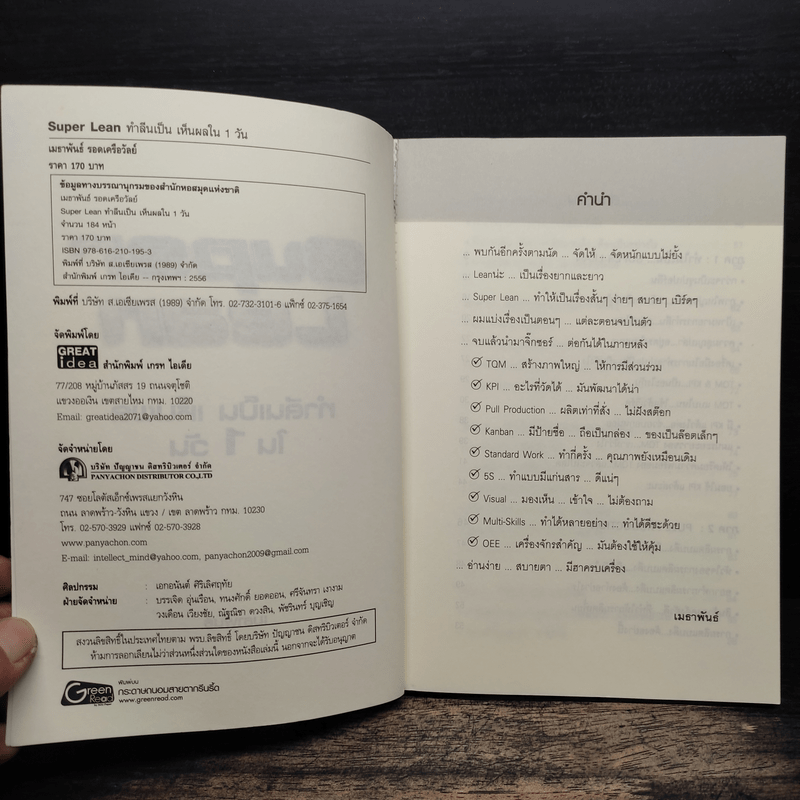 Super Lean ทำลีนเป็น เห็นผลใน 1 วัน
เมธาพันธ์ รอดเครือวัลย์
ราคา 170 บาท
ข้อมูลทางบรรณานุกรมของสำนักหอสมุดแห่งชาติ
เมธาพันธ์ รอดเครือวัลย์
Super Lean ทำลีนเป็น เห็นผลใน 1 วัน
จำนวน 184 หน้า
ราคา 170 บาท
ISBN 978-616-210-195-3
พิมพ์ที่ บริษัท ส.เอเซียเพรส (1989) จำกัด
สำนักพิมพ์ เกรท ไอเดีย – กรุงเทพฯ : 2556
พิมพ์ที่ บริษัท ส.เอเซียเพรส (1989) จำกัด โทร. 02-732-3101-6 แฟ็กซ์ 02-375-1654
จัดพิมพ์โดย
GREAT idea สำนักพิมพ์ เกรท ไอเดีย
77/208 หมู่บ้านภัสสร 19 ถนนจตุโชติ
แขวงออเงิน เขตสายไหม กทม. 10220
Email: greatidea2071@yahoo.com
จัดจำหน่ายโดย
บริษัท ปัญญาชน ดิสทริบิวเตอร์ จำกัด
PANYACHON DISTRIBUTOR CO.,LTD
747 ซอยโลตัสเอ็กซ์เพรสแยกวังหิน
ถนน ลาดพร้าว-วังหิน แขวง / เขต ลาดพร้าว กทม. 10230
โทร. 02-570-3929 แฟกซ์ 02-570-3928
www.panyachon.com
E-mail: intellect_mind@yahoo.com, panyachon2009@gmail.com
ศิลปกรรม : เอกอนันต์ ศิริเลิศฤทัย
ฝ่ายจัดจำหน่าย : บรรเจิด อุ่นเรือน, ทนงศักดิ์ ยอดออน, ศรีจันทรา เงางาม
วงเดือน เวียงชัย, ณัฐณิชา ดวงสิน, พัชรินทร์ บุญเชิญ
สงวนลิขสิทธิ์ในประเทศไทยตาม พรบ.ลิขสิทธิ์ โดยบริษัท ปัญญาชน ดิสทริบิวเตอร์ จำกัด
ห้ามการลอกเลียนไม่ว่าส่วนหนึ่งส่วนใดของหนังสือเล่มนี้ นอกจากจะได้รับอนุญาต
Green Read
พิมพ์บน
กระดาษถนอมสายตากรีนรี้ด
www.greenread.com
คำนำ
... พบกันอีกครั้งตามนัด ... จัดให้ ... จัดหนักแบบไม่ยั้ง
... Leanน่ะ ... เป็นเรื่องยากและยาว
... Super Lean ... ทำให้เป็นเรื่องสั้นๆ ง่ายๆ สบายๆ เบิร์ดๆ
... ผมแบ่งเรื่องเป็นตอนๆ ... แต่ละตอนจบในตัว
... จบแล้วนำมาจิ๊กซอร์ ... ต่อกันได้ในภายหลัง
TQM ... สร้างภาพใหญ่ ... ให้การมีส่วนร่วม
KPI ... อะไรที่วัดได้ ... มันพัฒนาได้น่า
Pull Production ... ผลิตเท่าที่สั่ง ... ไม่ฝังสต๊อก
Kanban ... มีป้ายชื่อ ... ถือเป็นกล่อง ... ของเป็นล๊อตเล็กๆ
Standard Work ... ทำกี่ครั้ง ... คุณภาพยังเหมือนเดิม
5S ... ทำแบบมีแก่นสาร ... ดีแน่ๆ
Visual ... มองเห็น ... เข้าใจ ... ไม่ต้องถาม
Multi-Skills ... ทำได้หลายอย่าง ... ทำได้ดีซะด้วย
OEE ... เครื่องจักรสำคัญ ... มันต้องใช้ให้คุ้ม
... อ่านง่าย ... สบายตา ... มีฮาครบเครื่อง
เมธาพันธ์